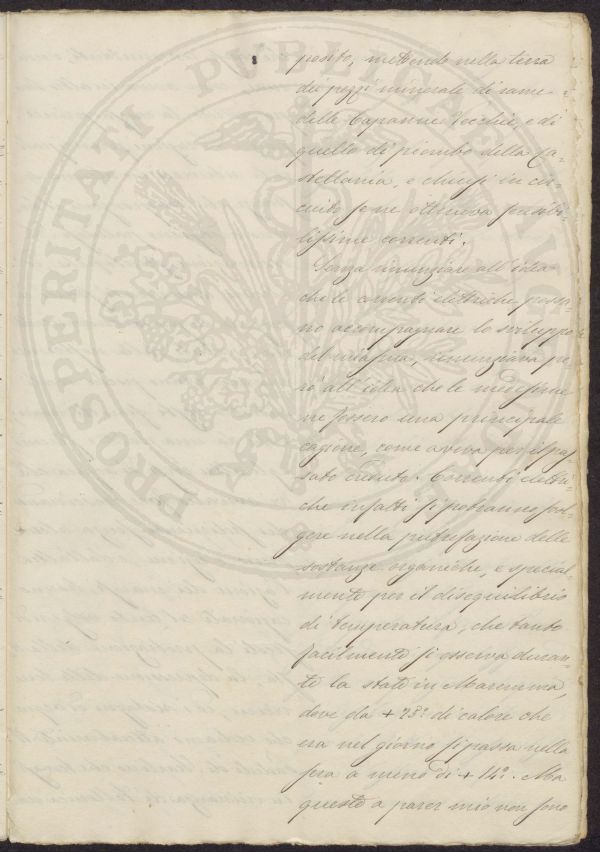 posito, mettendo nella terra
dei pezzi minerali di rame
delle Capanne Vecchie, e di
quello di piombo della Ca-
stellania, e chiusi in cir-
cuito se ne otteneva sensibi-
lissime correnti.
Senza rinunziare all'idea
che le correnti elettriche posso-
no accompagnare lo sviluppo
del miasma, rinunziava pe-
rò all'idea che le medesime
ne fossero una principale
cagione, come aveva per il pas-
sato creduto. Correnti elettri-
che infatti si potranno svol-
gere nella putrefazione delle
sostanze organiche, e special-
mente per il disequilibrio
di temperatura, che tanto
facilmente si osserva duran-
te la state in Maremma,
dove da + 28° di calore che
era nel giorno si passa nella
sera a meno di + 14°. Ma
queste a parer mio non sono
PROSPERITATI PUBLICAE